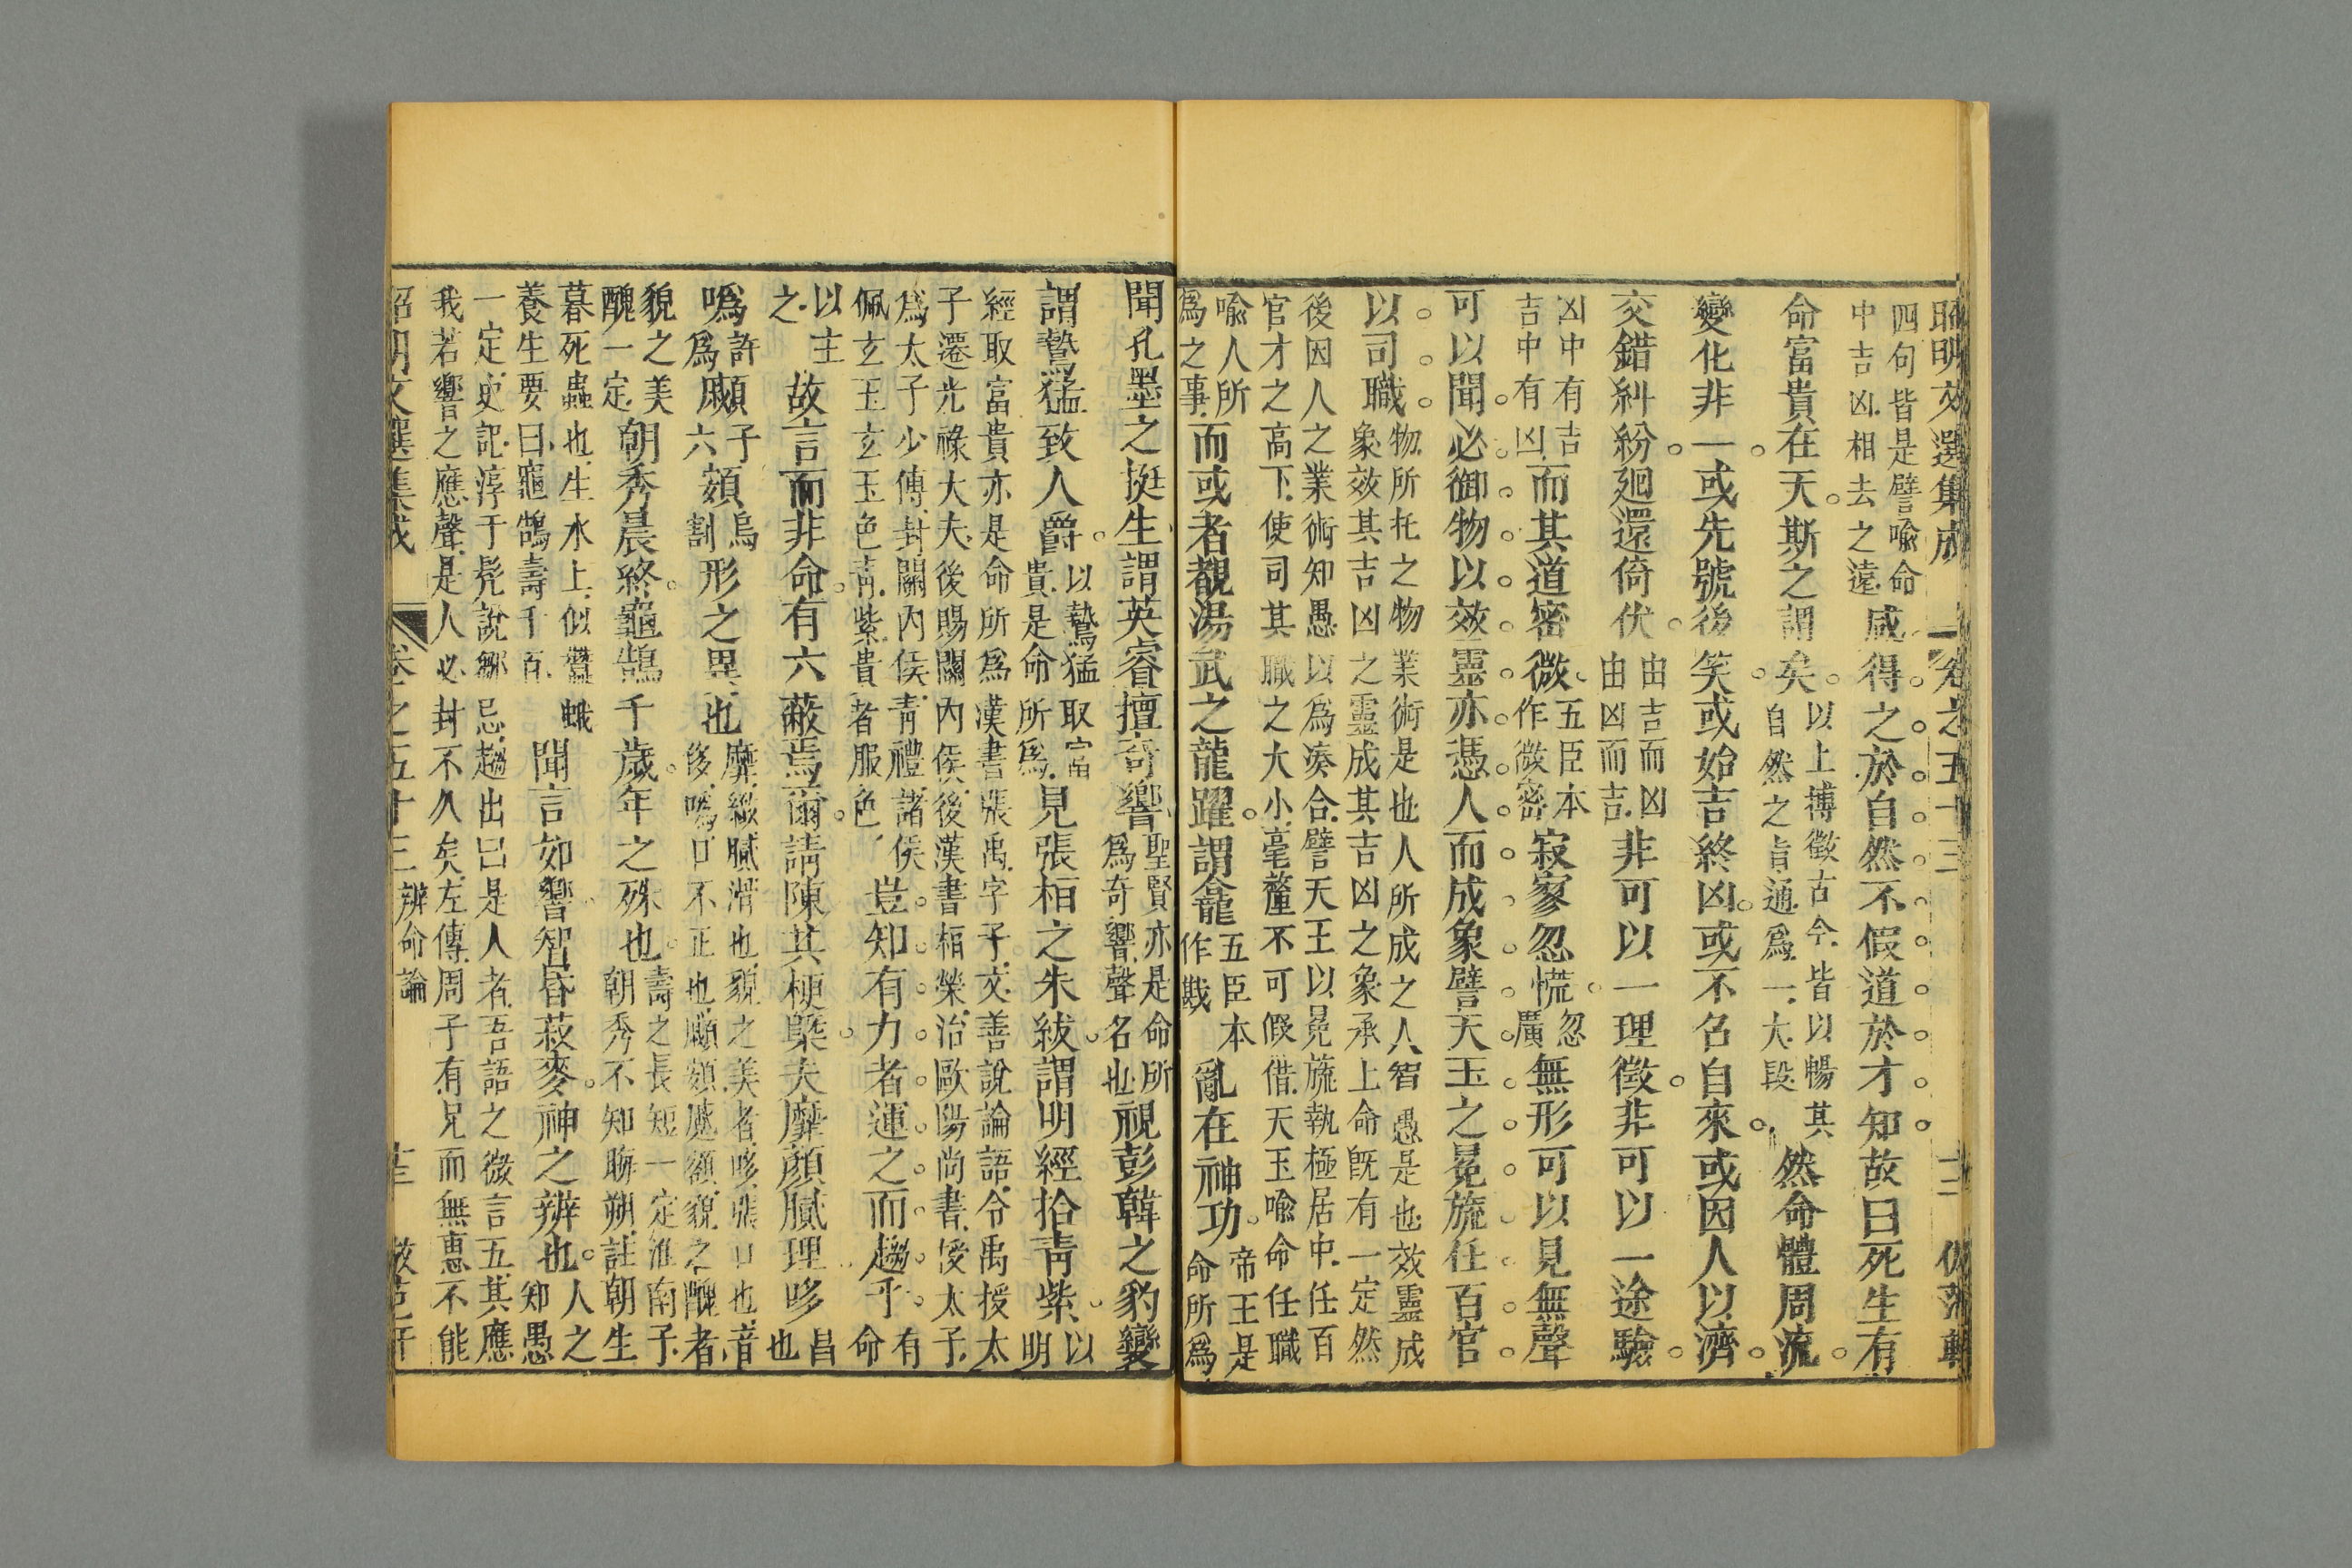 昭明文選集成 卷之五十三 十三
四句皆是譬喻命
中吉凶相去之遠
咸得之於自然不假道於才知故曰死生有
命富貴在天斯之謂矣
以上搏徵古今皆以暢其
自然之旨通為一大段
然命體周流
變化非一或先號後笑或始吉終凶或不召自來或因人以濟
交錯糾紛廻還倚伏
由吉而凶
由凶而吉
非可以一理徵非可以一途驗
凶中有吉
吉中有凶
而其道密微
五臣本
作微密
寂寥忽慌
忽
廣
無形可以見無聲
可以聞必御物以效靈亦憑人而成象譬天王之冕旒任百官
以司職
物所托之物業術是也人所成之人智愚是也效靈成
象效其吉凶之靈成其吉凶之象承上命既有一定然
後因人之業術知愚以為湊合譬天王以冕旒執極居中任百
官才之高下使司其職之大小毫釐不可假借天王喻命任職
喻人所
為之事
而或者覩湯武之龍躍謂龕
五臣本
作戡
亂在神功
帝王是
命所為
聞孔墨之挺生謂英睿擅奇響
聖賢亦是命所
為奇響聲名也
視彭韓之豹變
謂鷙猛致人爵
以鷙猛取富
貴是命所為
見張桓之朱紱謂明經拾青紫
以
明
經取富貴亦是命所為漢書張禹字子文善說論語令禹授太
子遷光祿大夫後賜關內侯後漢書桓榮治歐陽尚書授太子
為太子少傅封關內侯青禮諸侯
佩玄玉玄玉色青紫貴者服色
豈知有力者運之而趨乎
有
命
以主
之
故言而非命有六蔽焉爾請陳其梗槩夫靡顏膩理哆
昌
也
㖞
許
為
顣
子
六
頞
烏
割
形之異也
靡緻膩滑也貌之美者哆張口也音
侈㖞口不正也顣頞蹙額貌之醜者
貌之美
醜一定
朝秀晨終龜鵠千歲年之殊也
壽之長短一定淮南子
朝秀不知晦朔註朝生
暮死蟲也生水上似蠶蛾
養生要曰龜鵠壽千百
聞言如響智昏菽麥神之辨也
人之
知愚
一定史記淳于髡說鄒忌趨出曰是人者吾語之微言五其應
我若響之應聲是人必封不久矣左傳周子有兄而無惠不能
昭明文選集成 卷之五十三 辨命論 十三